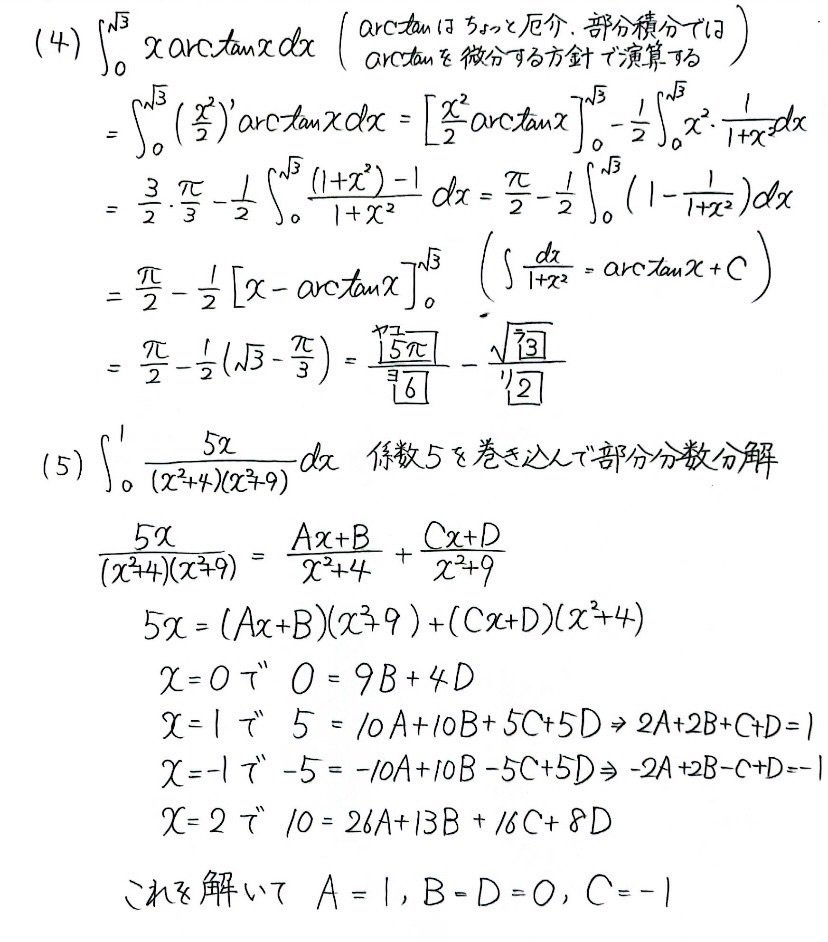 (4) ∫₀^√3 x arctan x dx (arctanはちょっと厄介.部分積分では
arctanを微分する方針で演算する)
= ∫₀^√3 (x²/2)' arctan x dx = [x²/2 arctan x]₀^√3 - 1/2 ∫₀^√3 x²・1/(1+x²) dx
= 3/2・π/3 - 1/2 ∫₀^√3 ((1+x²)-1)/(1+x²) dx = π/2 - 1/2 ∫₀^√3 (1 - 1/(1+x²)) dx
= π/2 - 1/2 [x - arctan x]₀^√3 (∫ dx/(1+x²) = arctan x + C)
= π/2 - 1/2 (√3 - π/3) = ヤユ 5π / ヨ 6 - √ラ 3 / リ 2
(5) ∫₀^1 5x/((x²+4)(x²+9)) dx 係数5を巻き込んで部分分数分解
5x/((x²+4)(x²+9)) = (Ax+B)/(x²+4) + (Cx+D)/(x²+9)
5x = (Ax+B)(x²+9) + (Cx+D)(x²+4)
x=0で 0 = 9B + 4D
x=1で 5 = 10A+10B+5C+5D ⇒ 2A+2B+C+D=1
x=-1で -5 = -10A+10B-5C+5D ⇒ -2A+2B-C+D=-1
x=2で 10 = 26A+13B+16C+8D
これを解いて A=1, B=D=0, C=-1